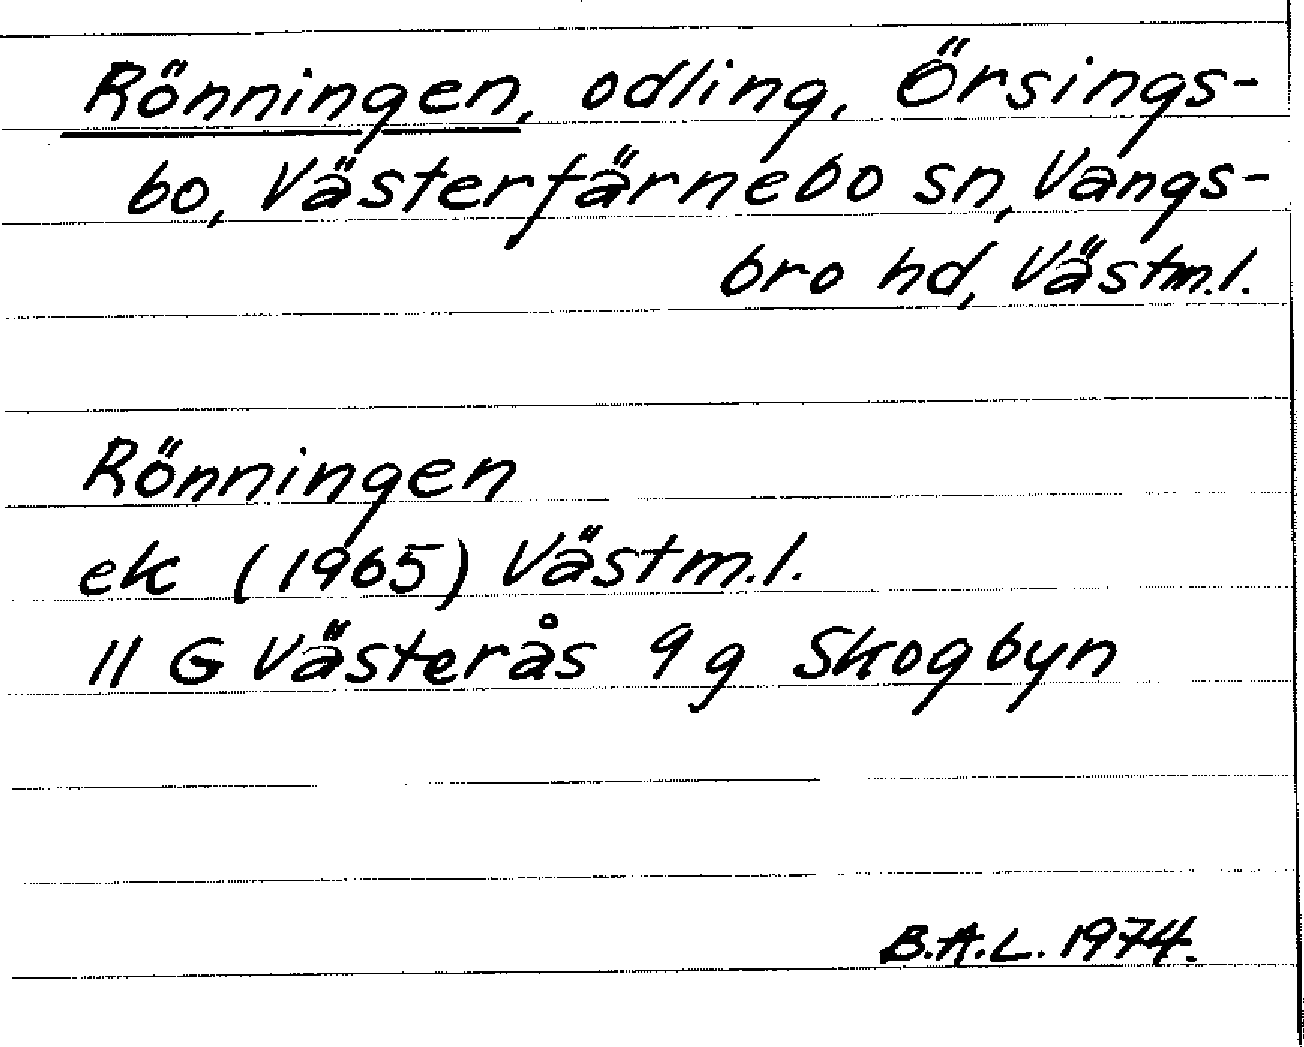 Rönningen, odling, Örsings-
bo, Västerfärnebo sn, Vangs-
bro hd, Västm.l.
Rönningen
ek (1965) Västm.l.
11 G Västerås 9 g Skogbyn
B.A.L. 1974.